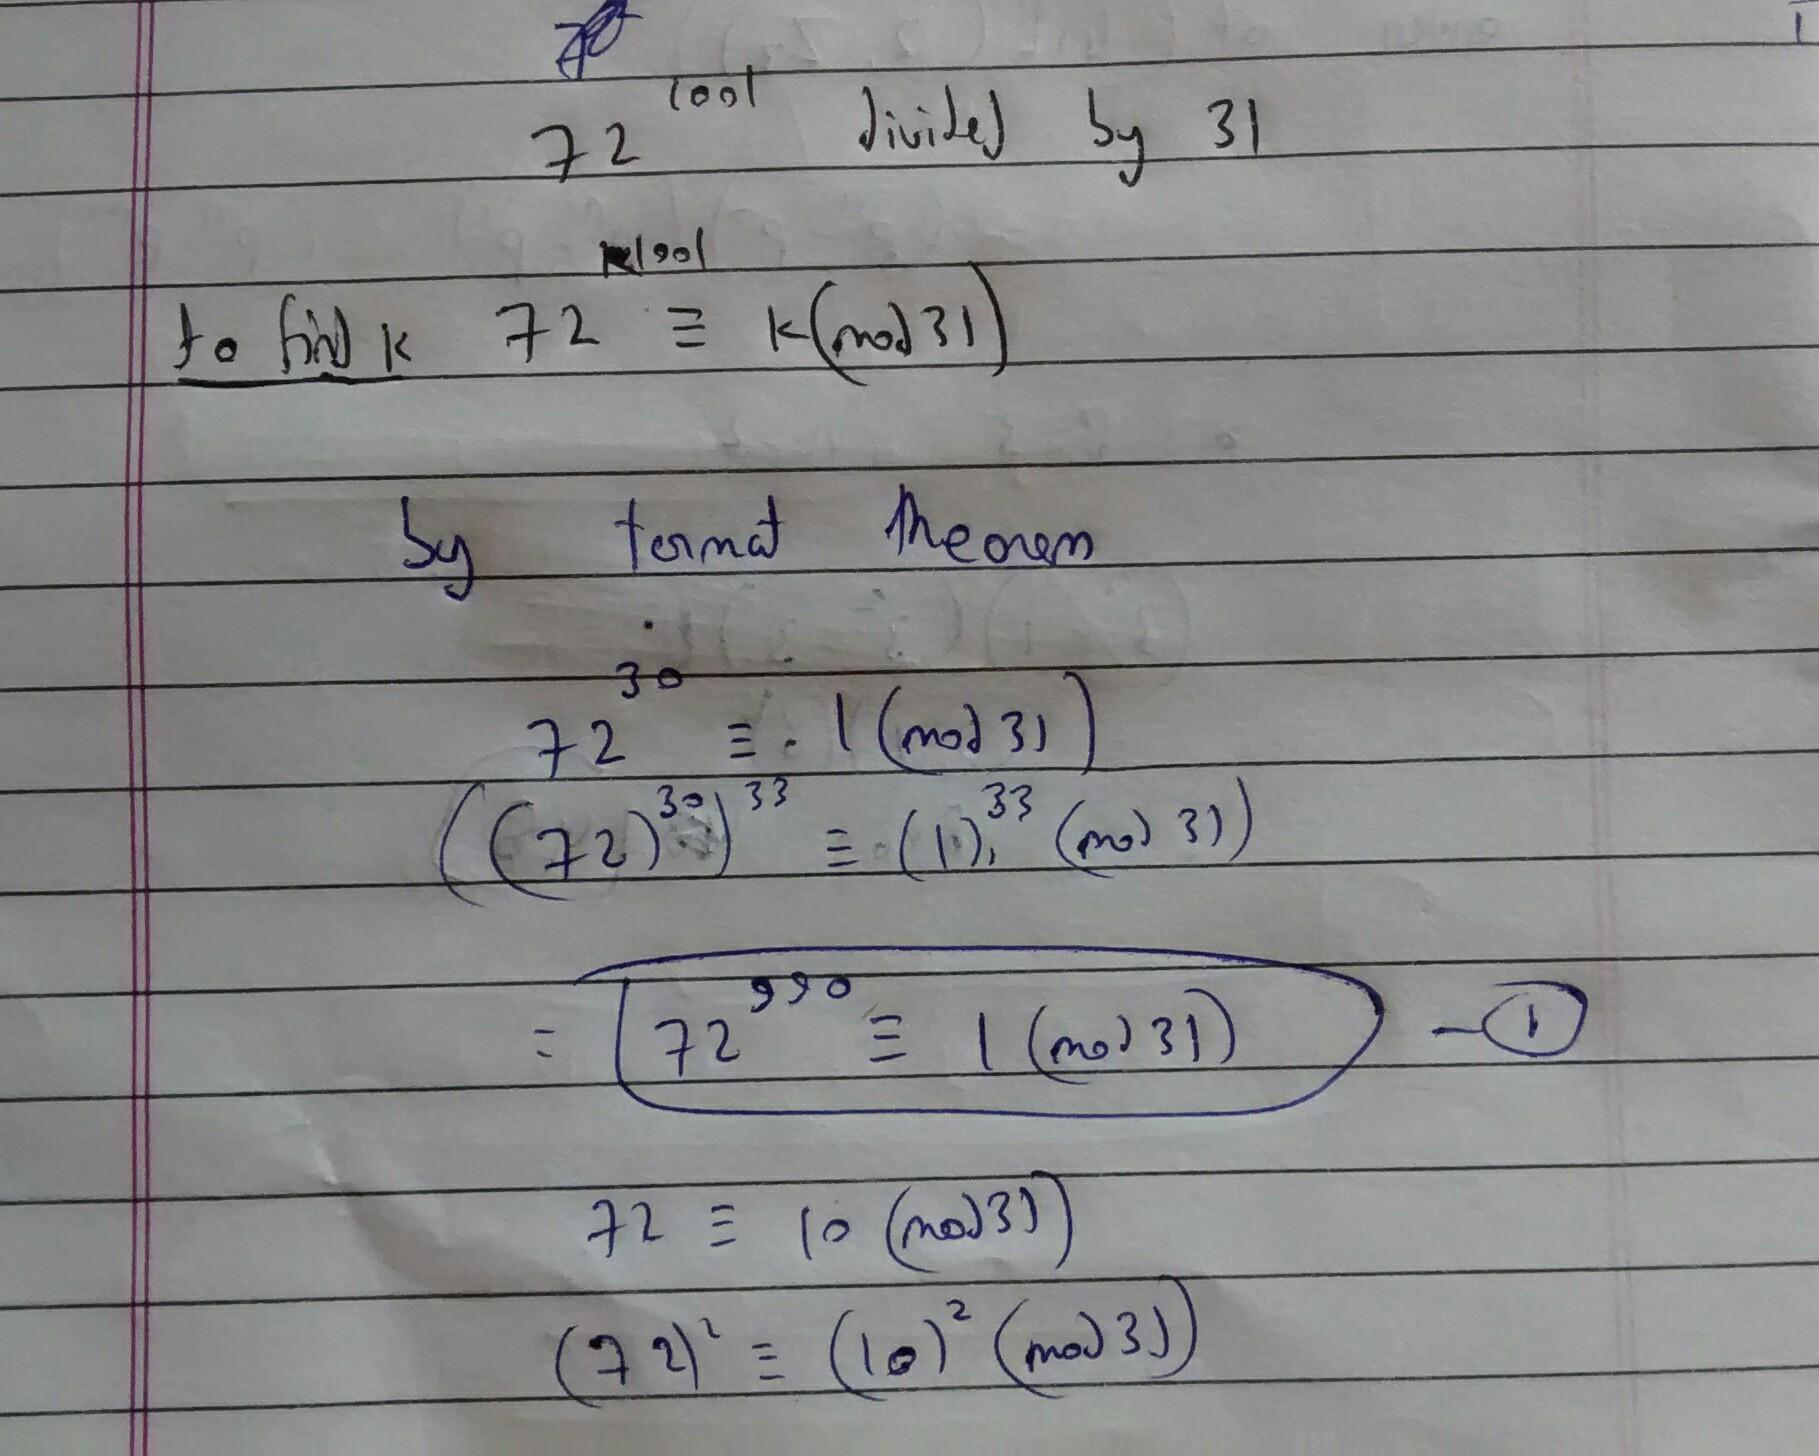 72^1001 divided by 31
to find k 72^1001 ≡ k(mod 31)
by fermat theorem
72^30 ≡ 1 (mod 31)
((72)^30)^33 ≡ (1)^33 (mod 31)
= 72^990 ≡ 1 (mod 31) - 1
72 ≡ 10 (mod 31)
(72)^2 ≡ (10)^2 (mod 31)